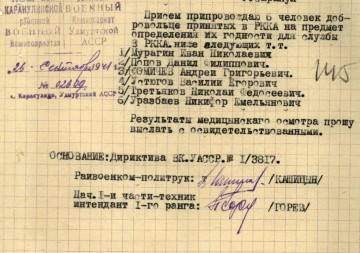 КАРАКУЛИНСКИЙ
ВОЕННЫЙ
районный
Комиссариат
ВОЕННЫЙ
Удмуртской
Комиссариат
АССР
26 сентября 1941 г.
№
с. Каракулино, Удмуртской АССР
При сем припровождаю 6 человек доб-
ровольце принятых в РККА на предмет
определения их годности для службы
в РККА. ниже следующих т.т.
1/Чурагин Иван Николаевич
2/Попов Данил Филиппович.
3/КОМИЧЕВ Андреи Григорьевич.
4/Устюгов Василии Егорович
5/Третьяков Николаи Федосеевич.
6/Уразбаев Никифор Емельянович
Результаты медицинского осмотра прошу
выслать с освидетельствованными.
ОСНОВАНИЕ: Дириктива ВК.УАССР. № 1/3817.
Раивоенком-политрук: /КАШИЦЫН/
Нач. I-и части-техник
интендант I-го ранга: /ГОРЕВ/